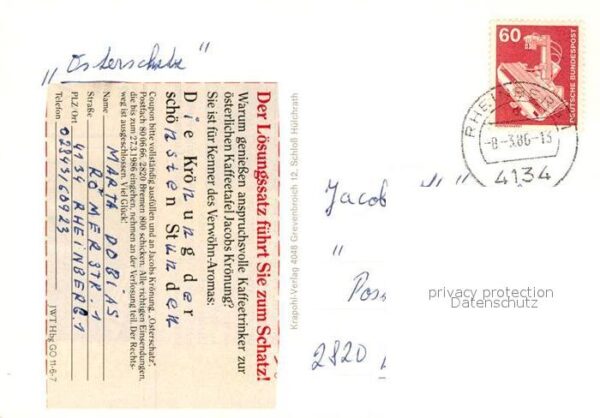 „Osterschatz"
Der Lösungssatz führt Sie zum Schatz!
Warum genießen anspruchsvolle Kaffeetrinker zur
österlichen Kaffeetafel Jacobs Krönung?
Sie ist für Kenner des Verwöhn-Aromas:
Die Krönung der
schönsten Stunden
Coupon bitte vollständig ausfüllen und an Jacobs Krönung, „Osterschatz"
Postfach 80 06 66, 2820 Bremen 800 schicken. Alle richtigen Einsendungen,
die bis zum 27.3.1986 eingehen, nehmen an der Verlosung teil. Der Rechts-
weg ist ausgeschlossen. Viel Glück!
Name MARTA DOBIAS
Straße RÖMERSTR. 1
PLZ/Ort 4134 RHEINBERG 1
Telefon 02843/60923
JWT Hbg GO 11-6-7
Krapohl-Verlag 4048 Grevenbroich 12, Schloß Hülchrath
60
DEUTSCHE BUNDESPOST
RHEINBERG
-8.-3.86-13
4134
Jacob
"
Pos
2820
privacy protection
Datenschutz